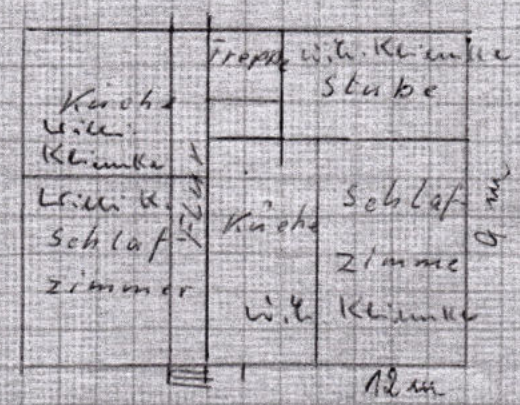 Küche
Willi
Klimke
Willi K.
Schlaf
zimmer
Flur
Treppe
W. K. Klimke
Stube
Küche
W. K.
Schlaf
zimmer
Klimke
9 m
12 m